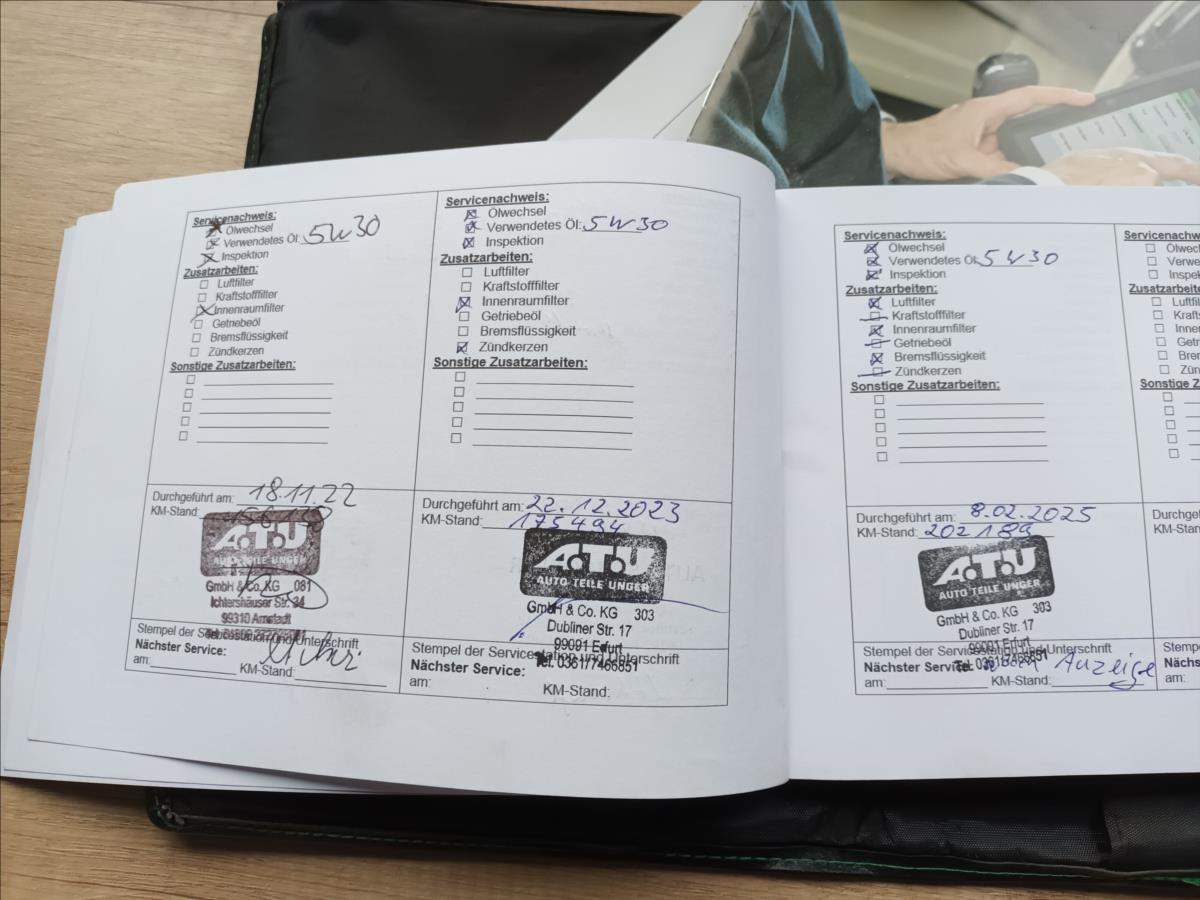 Servicenachweis:
Ölwechsel
Verwendetes Öl: 5W30
Inspektion
Zusatzarbeiten:
Luftfilter
Kraftstofffilter
Innenraumfilter
Getriebeöl
Bremsflüssigkeit
Zündkerzen
Sonstige Zusatzarbeiten:
Durchgeführt am: 18.11.22
KM-Stand:
A.T.U
AUTO TEILE UNGER
GmbH & Co. KG 081
Ichtershäuser Str. 34
99310 Arnstadt
Stempel der Servicestation und Unterschrift
Nächster Service:
am: KM-Stand:
Servicenachweis:
Ölwechsel
Verwendetes Öl: 5W30
Inspektion
Zusatzarbeiten:
Luftfilter
Kraftstofffilter
Innenraumfilter
Getriebeöl
Bremsflüssigkeit
Zündkerzen
Sonstige Zusatzarbeiten:
Durchgeführt am: 22.12.2023
KM-Stand: 175494
A.T.U
AUTO TEILE UNGER
GmbH & Co. KG 303
Dubliner Str. 17
99091 Erfurt
Tel. 0361/7466651
Stempel der Servicestation und Unterschrift
Nächster Service:
am: KM-Stand:
Servicenachweis:
Ölwechsel
Verwendetes Öl: 5W30
Inspektion
Zusatzarbeiten:
Luftfilter
Kraftstofffilter
Innenraumfilter
Getriebeöl
Bremsflüssigkeit
Zündkerzen
Sonstige Zusatzarbeiten:
Durchgeführt am: 8.02.2025
KM-Stand: 202189
A.T.U
AUTO TEILE UNGER
GmbH & Co. KG 303
Dubliner Str. 17
99091 Erfurt
Stempel der Servicestation und Unterschrift
Nächster Service: Anzeige
am: KM-Stand:
Servicenachweis
Ölwech
Verwe
Inspek
Zusatzarbeiten
Luftfilt
Krafts
Innen
Getrie
Brems
Zünd
Sonstige Zusatz
Durchgef
KM-Stand
Stempel
Nächs
am: